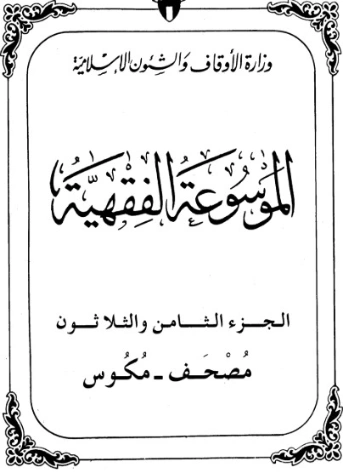 وزارة الأوقاف والشئون الإسلامية
الموسوعة الفقهية
الجزء الثامن والثلاثون
مُصْحَف - مُكُوس